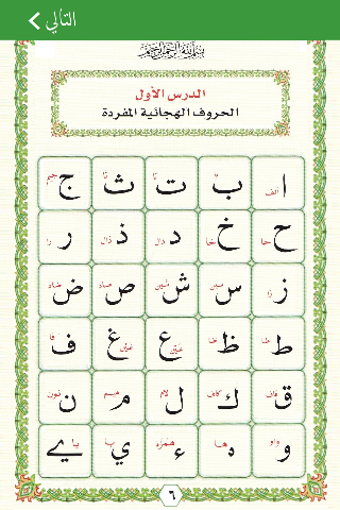 التالي
بسم الله الرحمن الرحيم
الدرس الأول
الحروف الهجائية المفردة
ا ألف ب با ت تا ث ثا ج جيم
ح حا خ خا د دال ذ ذال ر را
ز زا س سين ش شين ص صاد ض ضاد
ط طا ظ ظا ع عين غ غين ف فا
ق قاف ك كاف ل لام م ميم ن نون
و واو ه ها ء همزة ي يا ے يا
٦